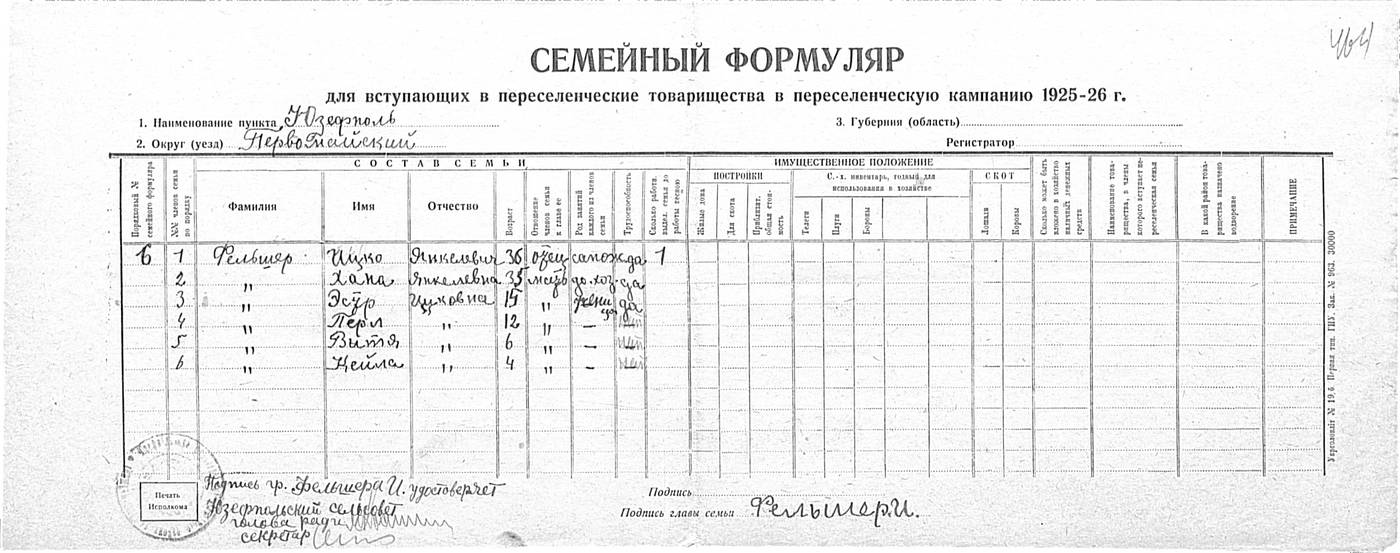 464
СЕМЕЙНЫЙ ФОРМУЛЯР
для вступающих в переселенческие товарищества в переселенческую кампанию 1925-26 г.
1. Наименование пункта Юзефполь
3. Губерния (область)
2. Округ (уезд) Первомайский
Регистратор
СОСТАВ СЕМЬИ
ИМУЩЕСТВЕННОЕ ПОЛОЖЕНИЕ
Порядковый № семейного формуляра
№№ членов семьи по порядку
Фамилия
Имя
Отчество
Возраст
Отношение членов семьи к главе ее
Род занятий каждого из членов семьи
Трудоспособность
Сколько работн. выдел. семья до работы весною
ПОСТРОЙКИ
Жилые дома
Для скота
Приблизит. общая стоимость
С.-х. инвентарь, годный для использования в хозяйстве
Телеги
Плуги
Бороны
СКОТ
Лошади
Коровы
Сколько может быть вложено в хозяйство наличных денежных средств
Наименование товарищества, в члены которого вступает переселенческая семья
В какой район товарищества назначено водворение
ПРИМЕЧАНИЕ
6 1 Фельшер Ицко Янкелевич 36 отец сапож да 1
2 " Хана Янкелевна 35 мать до. хоз. да
3 " Эстр Ицковна 15 " да
4 " Перл " 12 " – нет
5 " Витя " 6 " – нет
6 " Кейла " 4 " – нет
Укрголовліт № 19,6. Первая тип. ГПУ. Зак. № 963. 30000
Печать Исполкома
Подпись гр. Фельшера И. удостоверяет
Юзефпольский сельсовет
голова ради
секретар
Подпись
Подпись главы семьи Фельшер И.